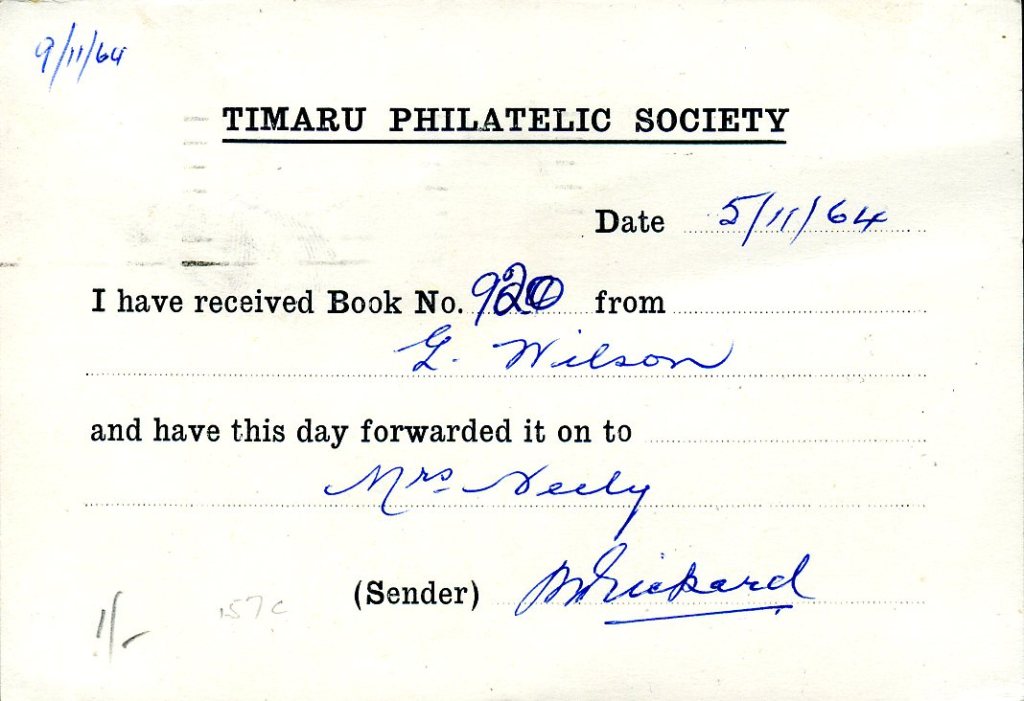 9/11/64
TIMARU PHILATELIC SOCIETY
Date 5/11/64
I have received Book No. 920 from
G. Wilson
and have this day forwarded it on to
Mrs Neely
(Sender)
1/- 157c